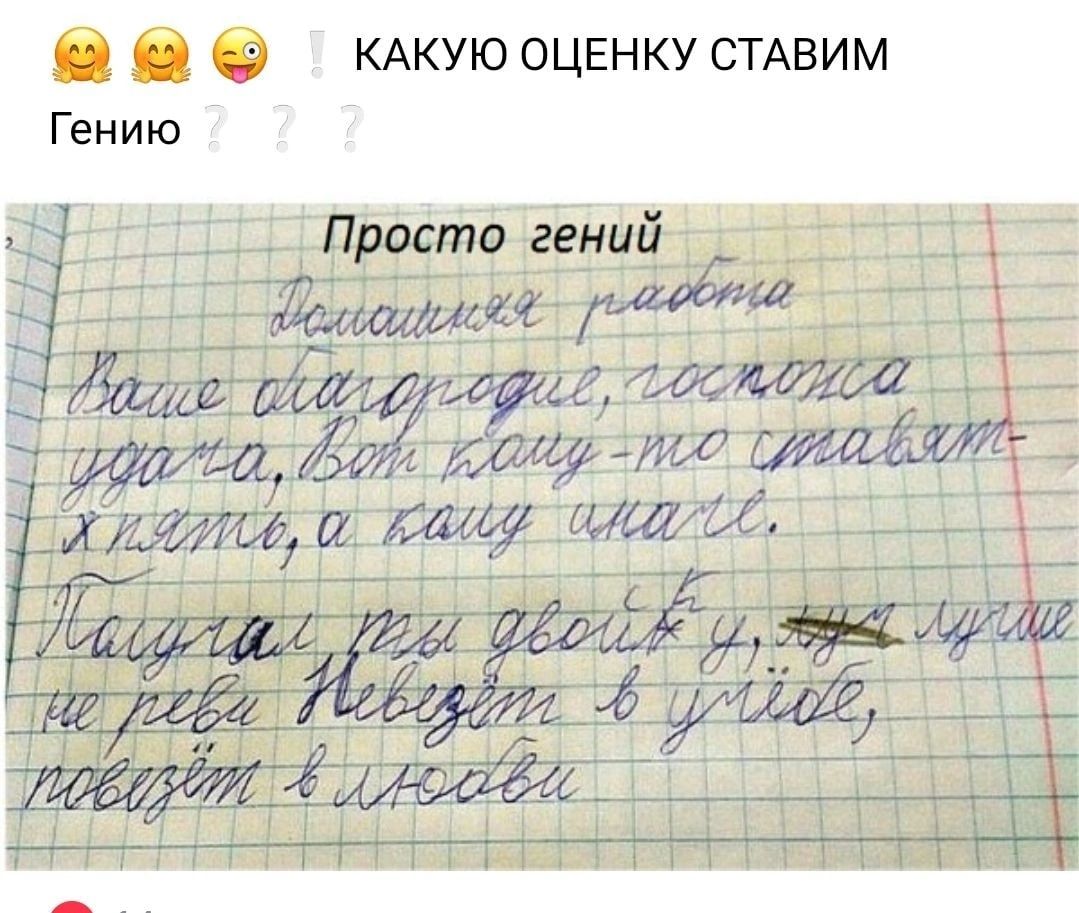 🤗 🤗 😜 ❕ КАКУЮ ОЦЕНКУ СТАВИМ
Гению ❔ ❔ ❔
Просто гений
Домашняя работа
Ваше благородие, госпожа
удача, Вот кому-то ставят-
х пять, а кому иначе.
Получил ты двойку, луч лучше
не реви Невезёт в учёбе,
повезёт в любви